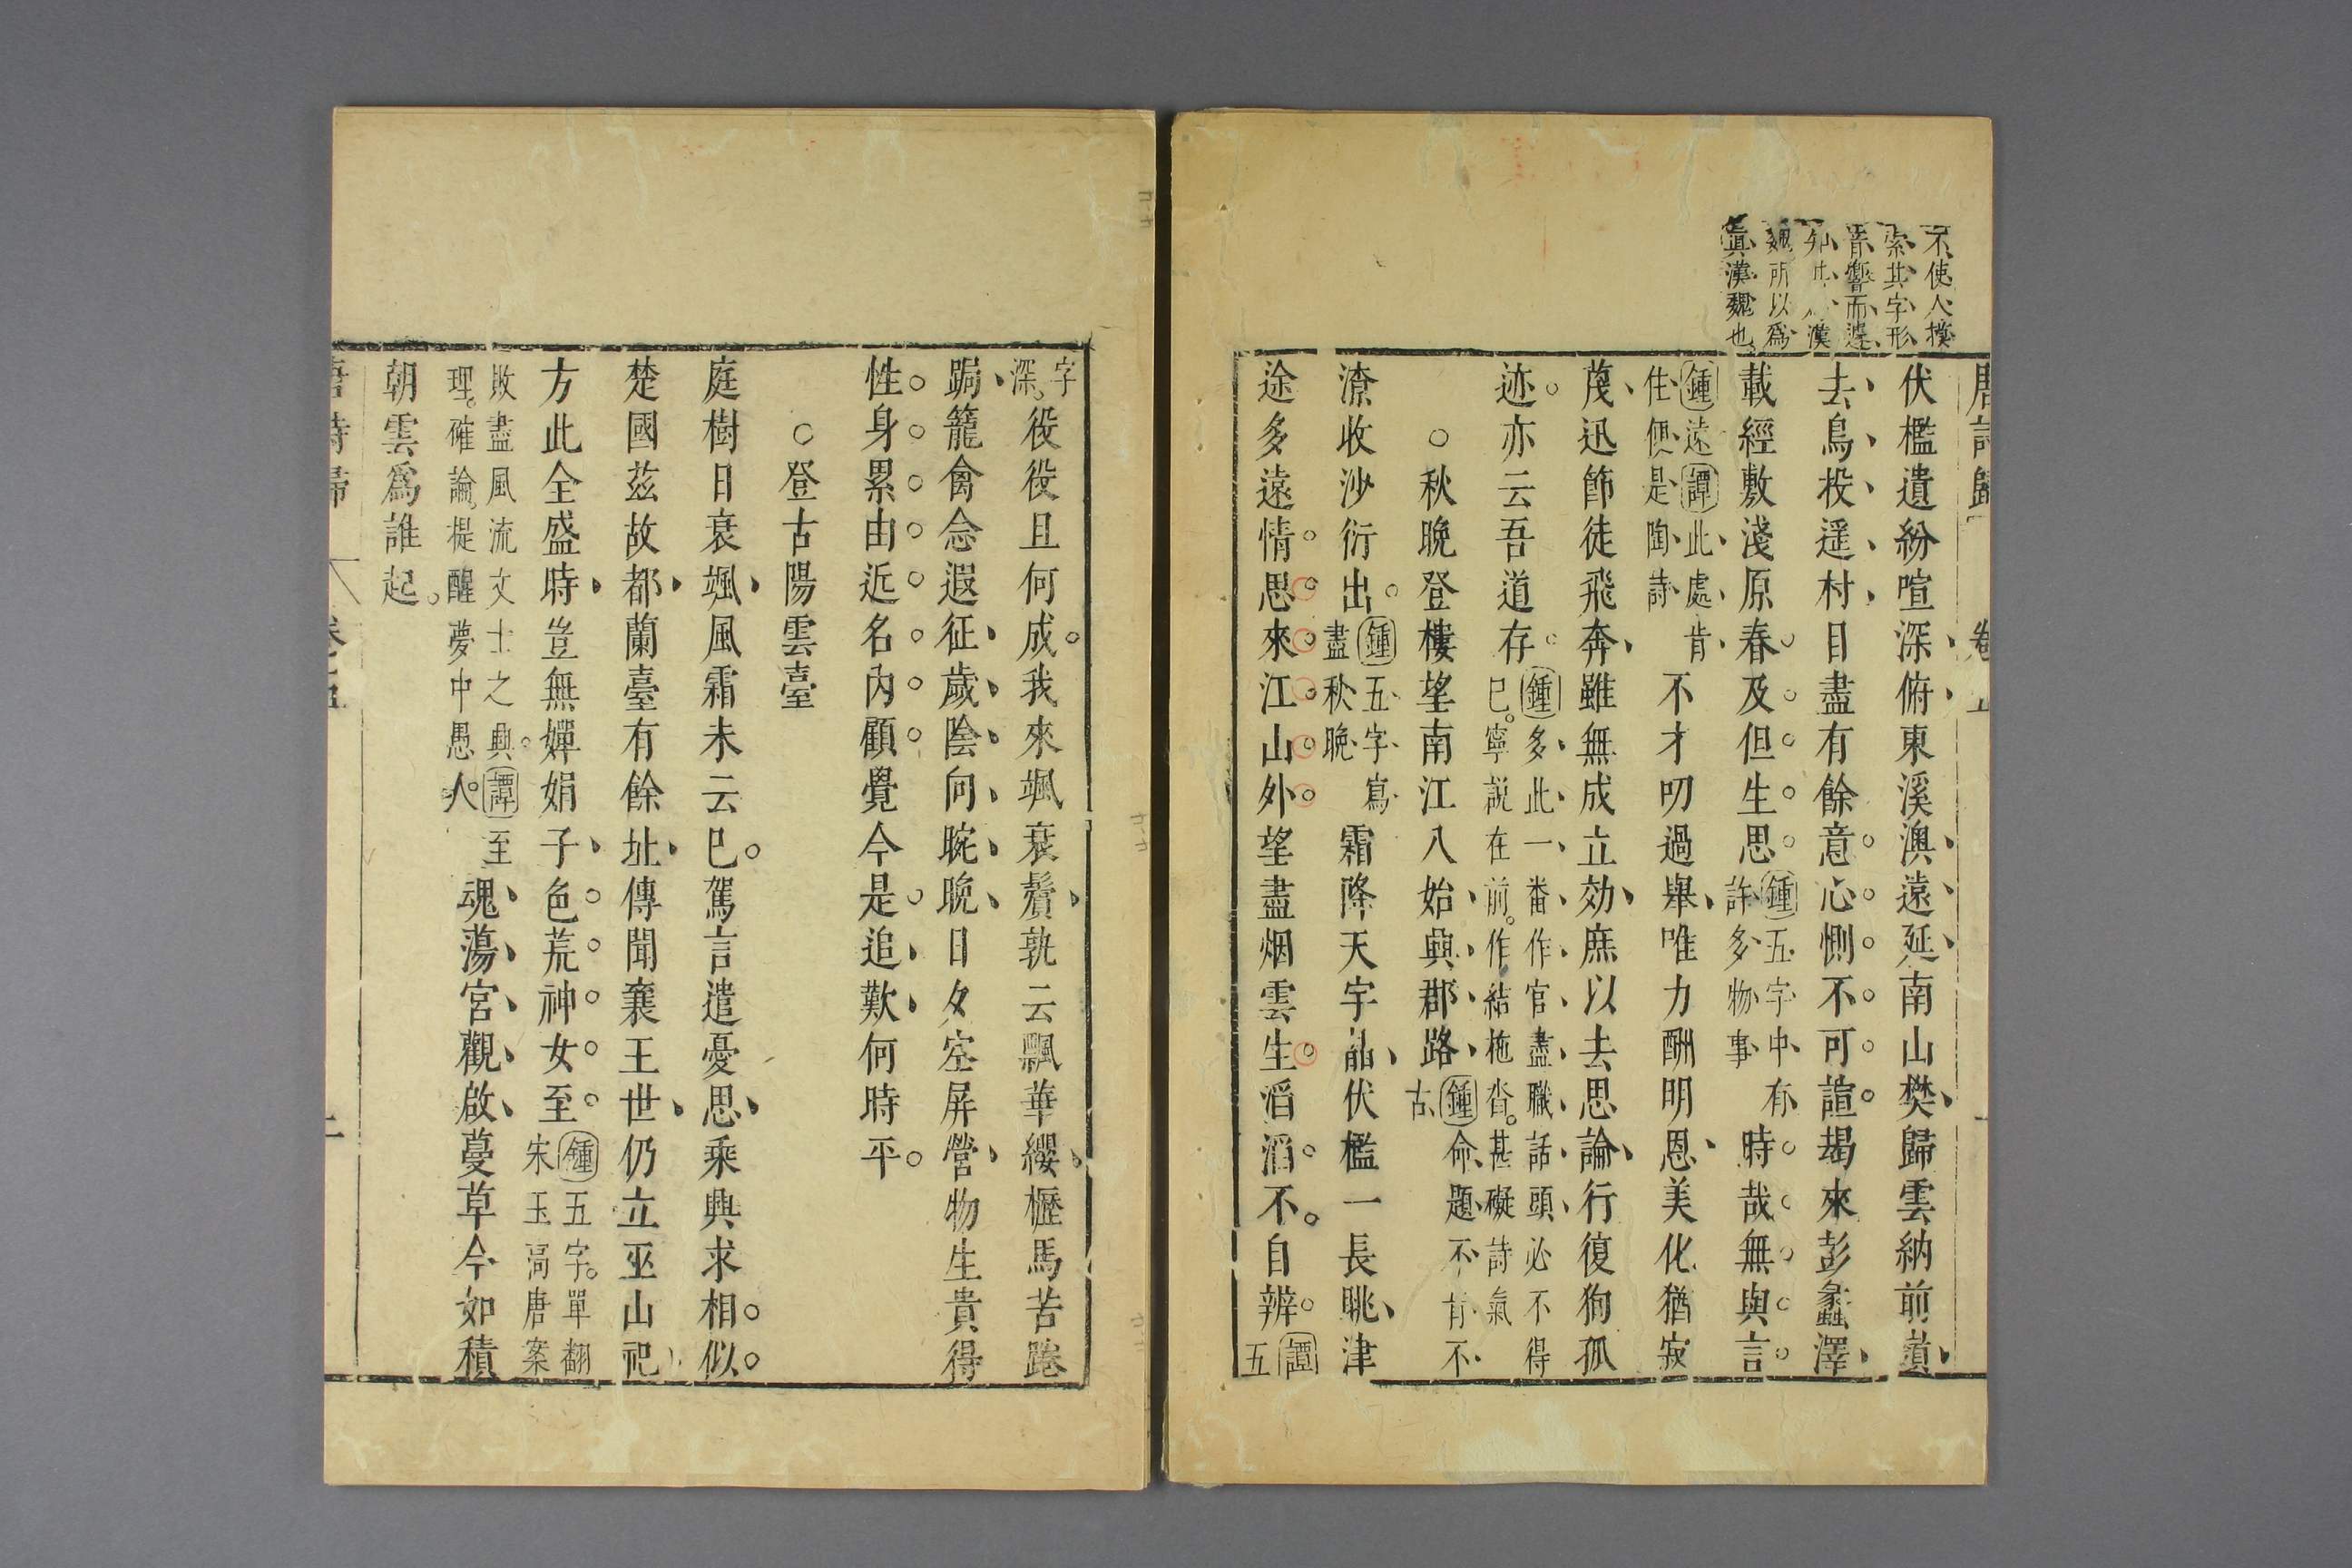 不使人摸
索其字形
音響而遽
知其爲漢
魏所以爲
真漢魏也
唐詩歸
伏檻遺紛喧深俯東溪澳遠延南山樊歸雲納前嶺
去鳥投遥村日盡有餘意心惻不可諠朅來彭蠡澤
載經敷淺原春及但生思鍾五字中有許多物事時哉無與言
鍾遠譚此處肯住便是陶詩不才叨過舉唯力酬明恩美化猶寂
蔑迅節徒飛奔雖無成立効庶以去思論行復徇孤
迹亦云吾道存鍾多此一番作官盡職話頭必不得已寧説在前作結拖沓甚礙詩氣
○秋晚登樓望南江入始興郡路鍾命題不肯不古
潦收沙衍出鍾五字寫盡秋晚霜降天宇晶伏檻一長眺津
途多遠情思來江山外望盡烟雲生滔滔不自辨譚五
字深役役且何成我來颯衰鬢孰云飄華纓櫪馬苦踡
跼籠禽念遐征歲陰向晼晚日夕空屏營物生貴得
性身累由近名內顧覺今是追歎何時平
○登古陽雲臺
庭樹日衰颯風霜未云已駕言遣憂思乘興求相似
楚國兹故都蘭臺有餘址傳聞襄王世仍立巫山祀
方此全盛時豈無嬋娟子色荒神女至鍾五字單翻宋玉高唐案
敗盡風流文士之興譚至理確論提醒夢中愚人魂蕩宮觀啟蔓草今如積
朝雲爲誰起
唐詩歸 卷之五 二